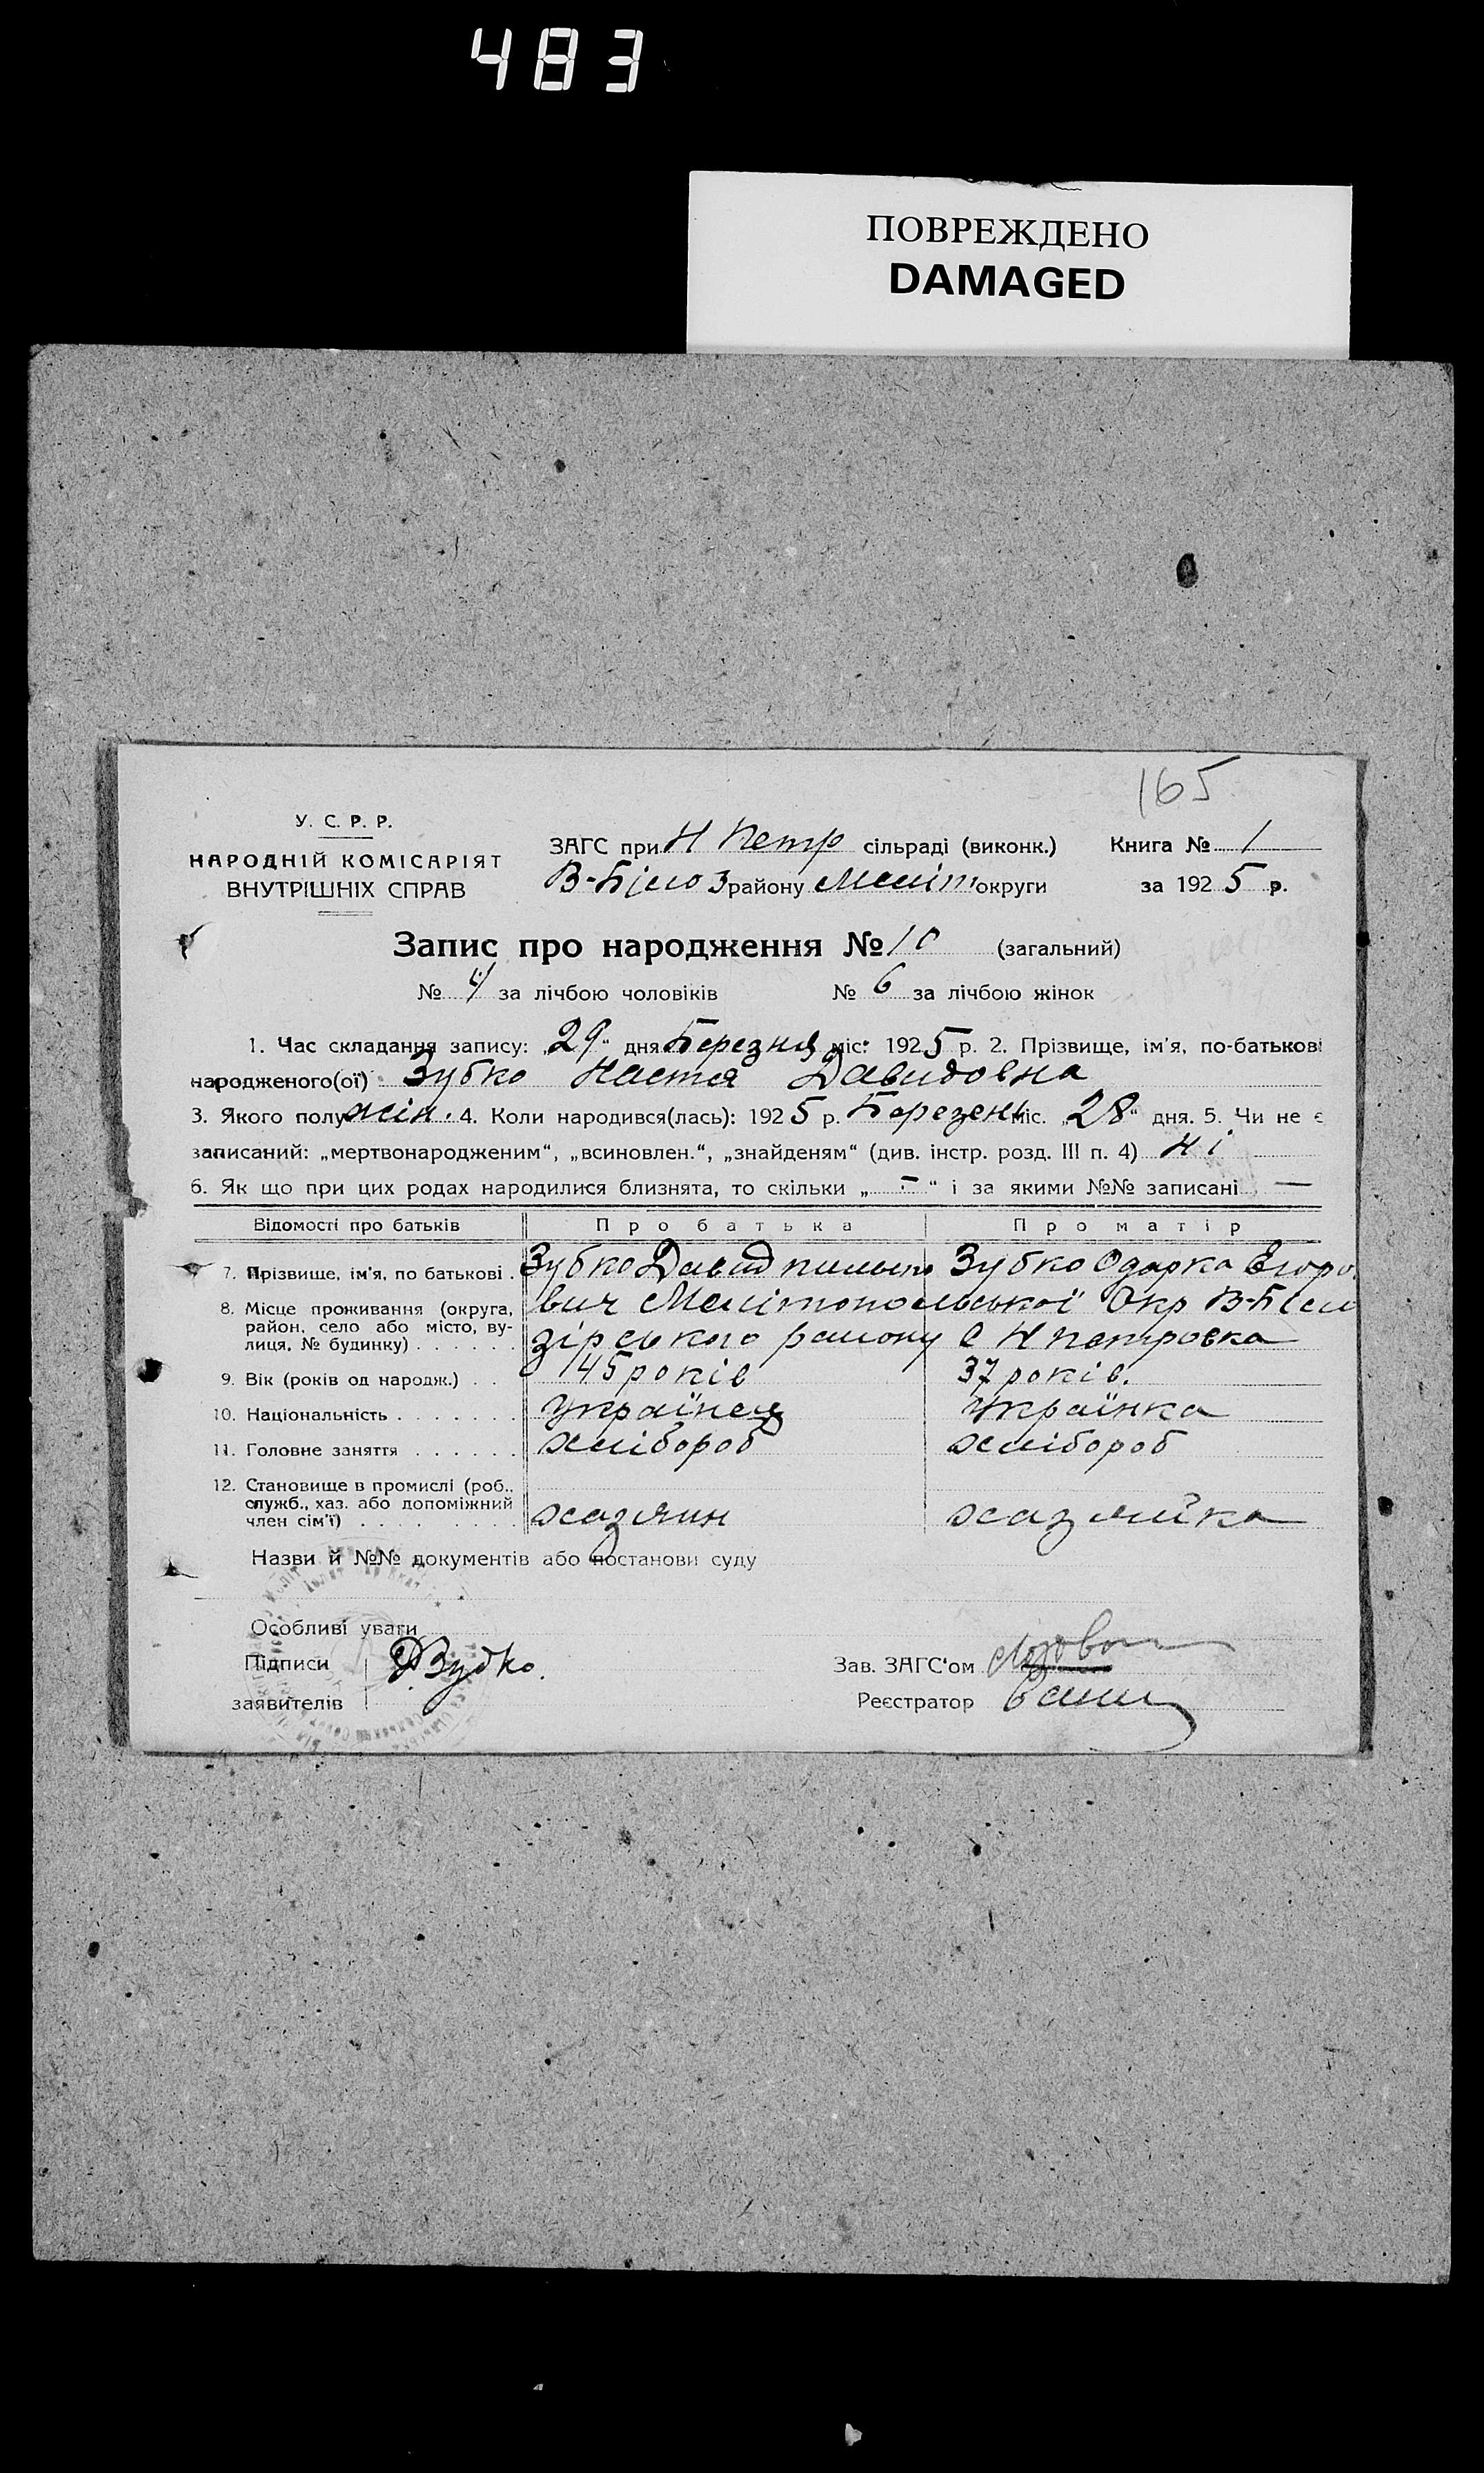 483
ПОВРЕЖДЕНО
DAMAGED
165
У. С. Р. Р.
НАРОДНІЙ КОМІСАРІЯТ
ВНУТРІШНІХ СПРАВ
ЗАГС при Н Петр сільраді (виконк.) Книга № 1
В-Біло З району Меліт округи за 1925 р.
Запис про народження № 10 (загальний)
№ 4 за лічбою чоловіків № 6 за лічбою жінок
1. Час складання запису: „29“ дня Березня міс. 1925 р. 2. Прізвище, ім'я, по-батькові
народженого(ої) Зубко Настя Давидовна
3. Якого полу жін. 4. Коли народився(лась): 1925 р. Березень міс. „28“ дня. 5. Чи не є
записаний: „мертвонародженим“, „всиновлен.“, „знайденям“ (див. інстр. розд. III п. 4) Ні
6. Як що при цих родах народилися близнята, то скільки „ – “ і за якими №№ записані —
Відомості про батьків Про батька Про матір
7. Прізвище, ім'я, по батькові . Зубко Давид Зубко Одарка Егоро
8. Місце проживання (округа, вич Мелітопольської Окр В-Біло
район, село або місто, ву-
лиця, № будинку) . . . . . . зірського району С Н петровка
9. Вік (років од народж.) . . 45 років 37 років.
10. Національність . . . . . . . Українец Українка
11. Головне заняття . . . . . . хлібороб хлібороб
12. Становище в промислі (роб.,
служб., хаз. або допоміжний
член сім'ї) . . . . . . . . хазяин хазяйка
Назви й №№ документів або постанови суду
Особливі уваги
Підписи ДЗубко.
заявителів
Зав. ЗАГС'ом
Реєстратор